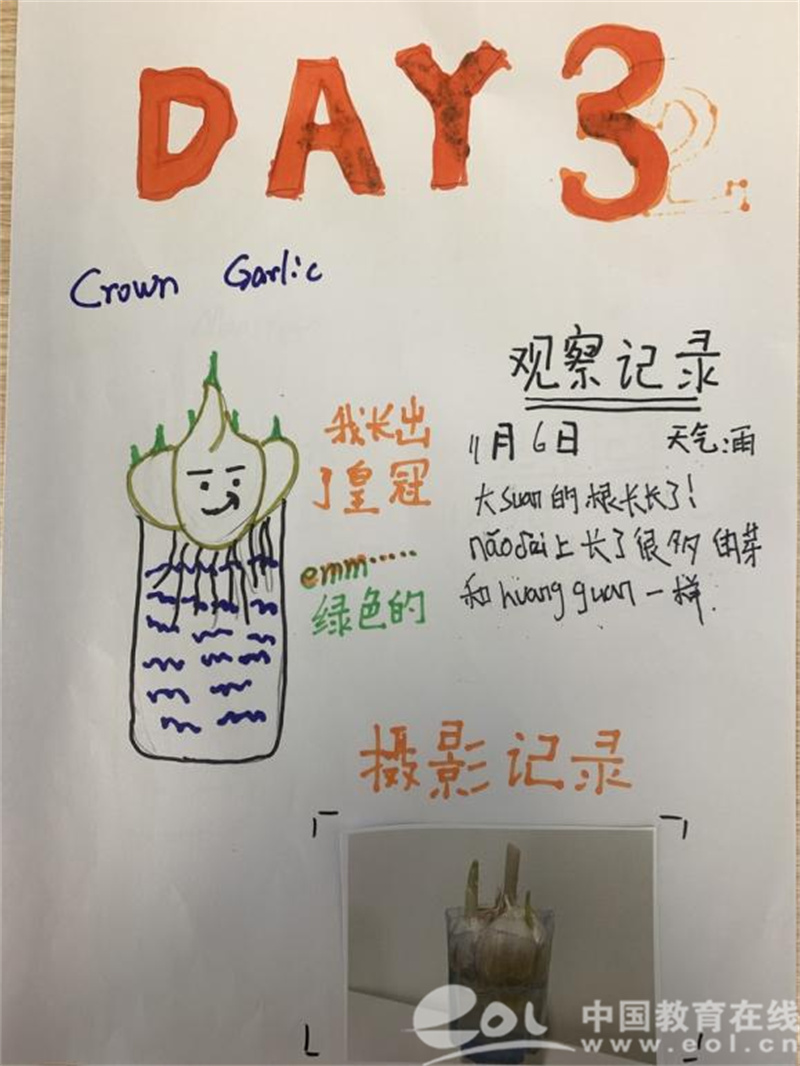 DAY 3
Crown Garlic
观察记录
11月6日 天气:雨
大suan的根长长了!
nǎodai上长了很多 由芽
和huang guan一样.
我长出
了皇冠
emm……
绿色的
摄影记录
eol 中国教育在线
www.eol.cn